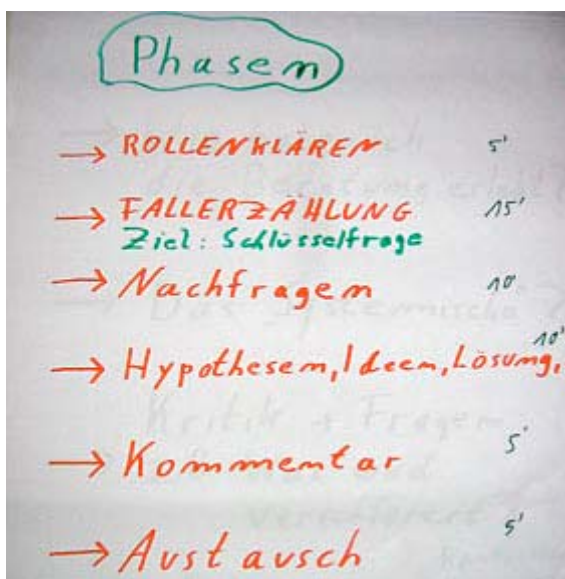 Phasen
→ ROLLENKLÄREN 5'
→ FALLERZÄHLUNG 15'
Ziel: Schlüsselfrage
→ Nachfragen 10'
→ Hypothesen, Ideen, Lösung, 10'
→ Kommentar 5'
→ Austausch 5'